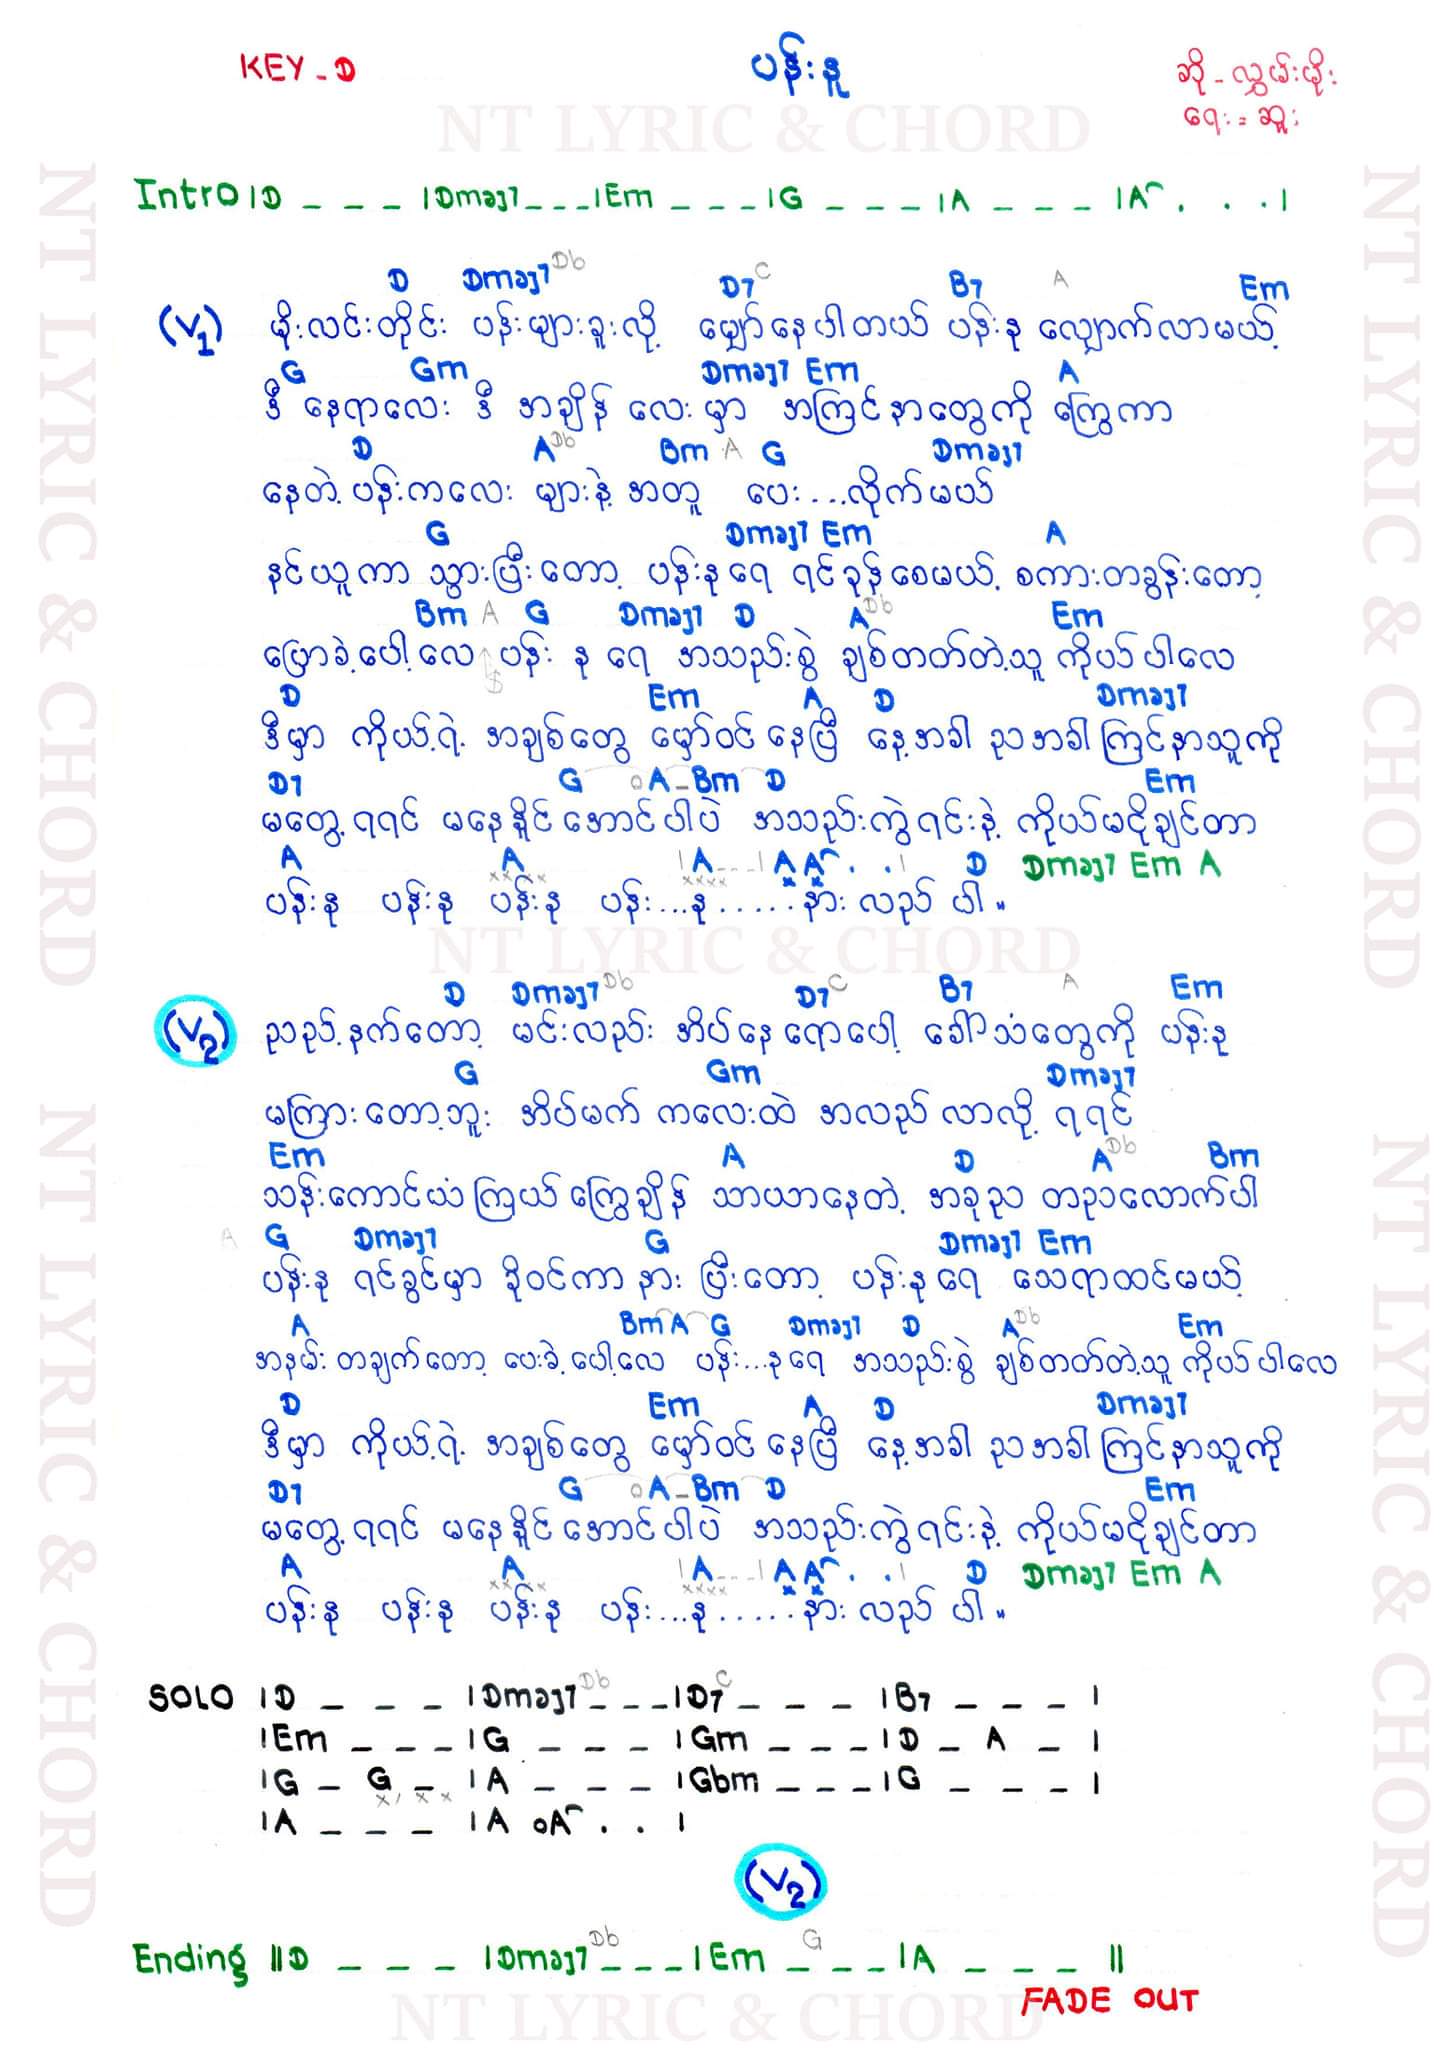 KEY - D
ပန်းနု
ဆို - လွှမ်းမိုး
ရေး = ဆူး
NT LYRIC & CHORD
Intro |D _ _ _ |Dmaj7 _ _ _ |Em _ _ _ |G _ _ _ |A _ _ _ |A . . . |
D Dmaj7 Db D7 C B7 A Em
(V1) မိုးလင်းတိုင်း ပန်းများခူးလို့ မျှော်နေပါတယ် ပန်းနု လျှောက်လာမယ့်
G Gm Dmaj7 Em A
ဒီ နေရာလေး ဒီ အချိန် လေးမှာ အကြင်နာတွေကို ကြွေကာ
D A Db Bm A G Dmaj7
နေတဲ့ ပန်းကလေး များနဲ့ အတူ ပေး...လိုက်မယ်
G Dmaj7 Em A
နင်ယူကာ သွားပြီးတော့ ပန်းနုရေ ရင်ခုန်စေမယ့် စကားတခွန်းတော့
Bm A G Dmaj7 D A Db Em
ပြောခဲ့ပေါ့လေ ပန်း နု ရေ အသည်းစွဲ ချစ်တတ်တဲ့သူ ကိုယ်ပါလေ
D Em A D Dmaj7
ဒီမှာ ကိုယ့်ရဲ့ အချစ်တွေ မှော်ဝင်နေပြီ နေ့အခါ ညအခါ ကြင်နာသူကို
D7 G A - Bm D Em
မတွေ့ရရင် မနေနိုင်အောင်ပါပဲ အသည်းကွဲရင်းနဲ့ ကိုယ်မငိုချင်တာ
A A | A _ _ _ | A A . . | D Dmaj7 Em A
ပန်းနု ပန်းနု ပန်းနု ပန်း...နု......နားလည်ပါ။
NT LYRIC & CHORD
D Dmaj7 Db D7 C B7 A Em
(V2) ညည့်နက်တော့ မင်းလည်း အိပ်နေရောပေါ့ ခေါ်သံတွေကို ပန်းနု
G Gm Dmaj7
မကြားတော့ဘူး အိပ်မက် ကလေးထဲ အလည် လာလို့ ရရင်
Em A D A Db Bm
သန်းကောင်ယံ ကြယ်ကြွေချိန် သာယာနေတဲ့ အခုည တညလောက်ပါ
A G Dmaj7 G Dmaj7 Em
ပန်းနု ရင်ခွင်မှာ ခိုဝင်ကာ နား ပြီးတော့ ပန်းနုရေ သေရာထင်မယ့်
A Bm A G Dmaj7 D A Db Em
အနမ်း တချက်တော့ ပေးခဲ့ပေါ့လေ ပန်း...နုရေ အသည်းစွဲ ချစ်တတ်တဲ့သူ ကိုယ်ပါလေ
D Em A D Dmaj7
ဒီမှာ ကိုယ့်ရဲ့ အချစ်တွေ မှော်ဝင်နေပြီ နေ့အခါ ညအခါ ကြင်နာသူကို
D7 G A - Bm D Em
မတွေ့ရရင် မနေနိုင်အောင်ပါပဲ အသည်းကွဲရင်းနဲ့ ကိုယ်မငိုချင်တာ
A A | A _ _ _ | A A . . | D Dmaj7 Em A
ပန်းနု ပန်းနု ပန်းနု ပန်း...နု......နားလည်ပါ။
SOLO |D _ _ _ |Dmaj7 Db _ _ _ |D7 C _ _ _ |B7 _ _ _ |
|Em _ _ _ |G _ _ _ |Gm _ _ _ |D _ A _ |
|G _ G _ |A _ _ _ |Gbm _ _ _ |G _ _ _ |
|A _ _ _ |A A . . |
(V2)
Ending ||D _ _ _ |Dmaj7 Db _ _ _ |Em _ G _ _ |A _ _ _ ||
FADE OUT
NT LYRIC & CHORD
NT LYRIC & CHORD
NT LYRIC & CHORD
NT LYRIC & CHORD
NT LYRIC & CHORD